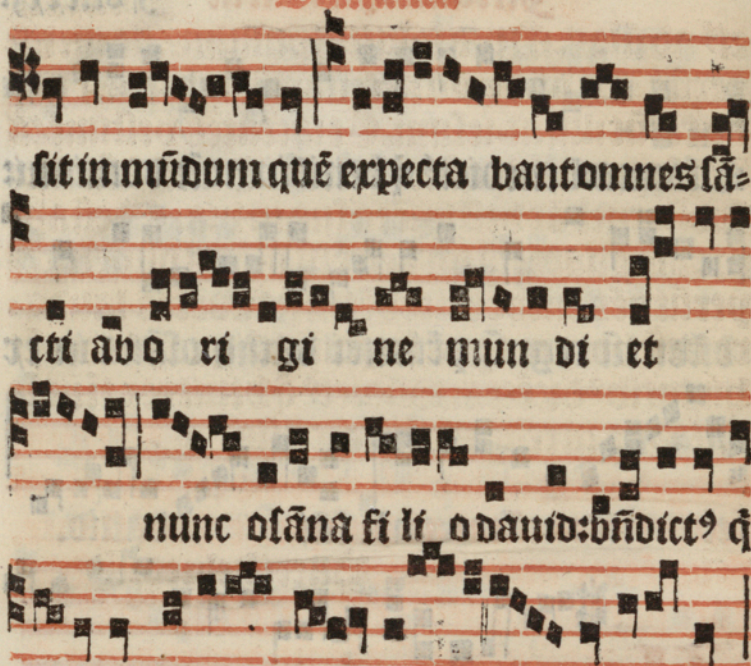 sit in mūdum quē expecta bant omnes sā-
cti ab o ri gi ne mun di et
nunc osāna fi li o dauid: bn̄dictꝰ q̄